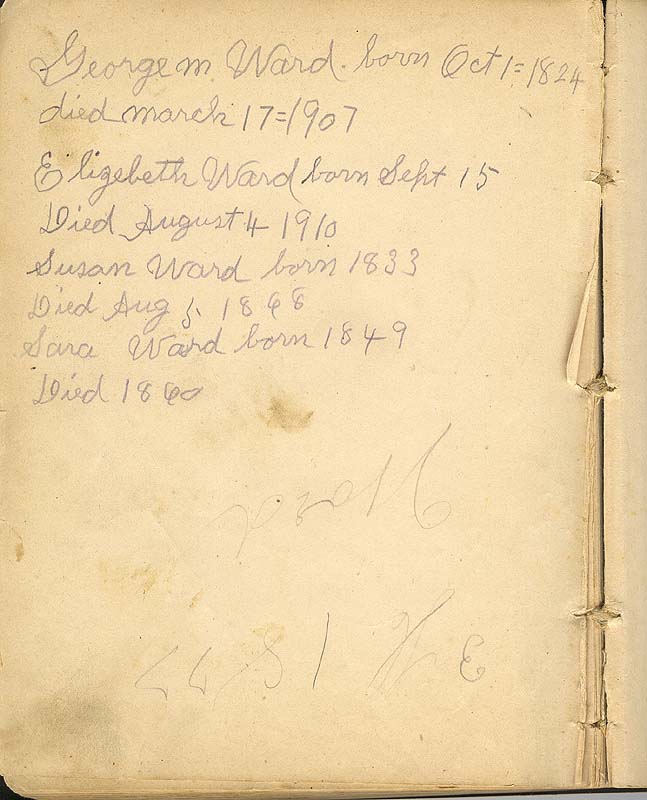 George m. Ward. born Oct 1=1824
died march 17=1907
Elizebeth Ward born Sept 15
Died August 4 1910
Susan Ward born 1833
Died Aug 5. 1868
Sara Ward born 1849
Died 1860